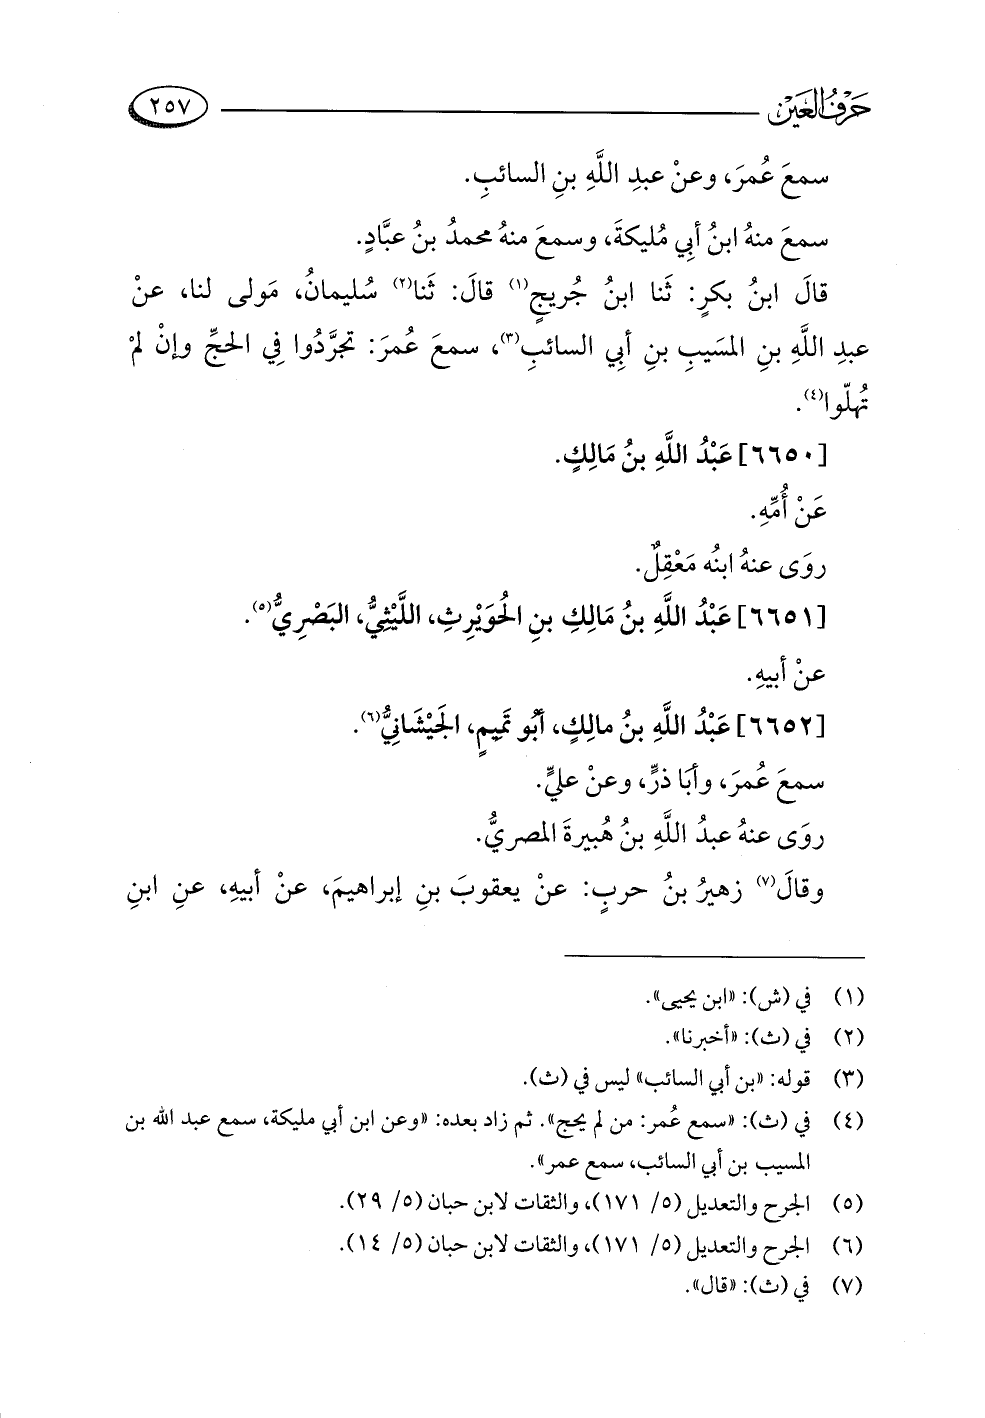 حَرْفُ العَيْن
٢٥٧
سمعَ عُمرَ، وعنْ عبدِ اللَّهِ بنِ السائبِ.
سمعَ منهُ ابنُ أبِي مُليكةَ، وسمعَ منهُ محمدُ بنُ عبَّادٍ.
قالَ ابنُ بكرٍ: ثَنا ابنُ جُريجٍ(١) قالَ: ثَنا(٢) سُليمانُ، مَولى لنا، عنْ
عبدِ اللَّهِ بنِ المسَيبِ بنِ أبِي السائبِ(٣)، سمعَ عُمرَ: تجرَّدُوا فِي الحجِّ وإنْ لمْ
تُهلّوا(٤).
[٦٦٥٠] عَبْدُ اللَّهِ بنُ مَالِكٍ.
عَنْ أُمِّهِ.
روَى عنهُ ابنُه مَعْقِلٌ.
[٦٦٥١] عَبْدُ اللَّهِ بنُ مَالِكِ بنِ الحُوَيْرِثِ، اللَّيْثِيُّ، البَصْرِيُّ(٥).
عنْ أبيهِ.
[٦٦٥٢] عَبْدُ اللَّهِ بنُ مالِكٍ، أَبُو تَمِيمٍ، الجَيْشَانِيُّ(٦).
سمعَ عُمرَ، وأبَا ذرٍّ، وعنْ عليٍّ.
روَى عنهُ عبدُ اللَّهِ بنُ هُبيرةَ المصريُّ.
وقالَ(٧) زهيرُ بنُ حربٍ: عنْ يعقوبَ بنِ إبراهيمَ، عنْ أبيهِ، عنِ ابنِ
(١) في (ش): «ابن يحيى».
(٢) في (ث): «أخبرنا».
(٣) قوله: «بن أبي السائب» ليس في (ث).
(٤) في (ث): «سمع عُمر: من لم يحج». ثم زاد بعده: «وعن ابن أبي مليكة، سمع عبد الله بن
المسيب بن أبي السائب، سمع عمر».
(٥) الجرح والتعديل (٥/ ١٧١)، والثقات لابن حبان (٥/ ٢٩).
(٦) الجرح والتعديل (٥/ ١٧١)، والثقات لابن حبان (٥/ ١٤).
(٧) في (ث): «قال».